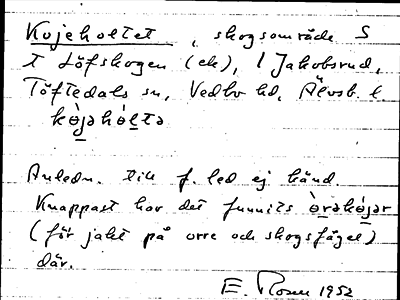 Kojeholtet, skogsområde S
t Löfskogen (ek), l Jakobsrud,
Töftedals sn, Vedbo hd, Älvsb. l.
kòjəhòltə
Anledn. till f. led ej känd.
Knappast har det funnits òrəkòjər
(för jakt på orre och skogsfågel)
där.
E. Rosen 1952